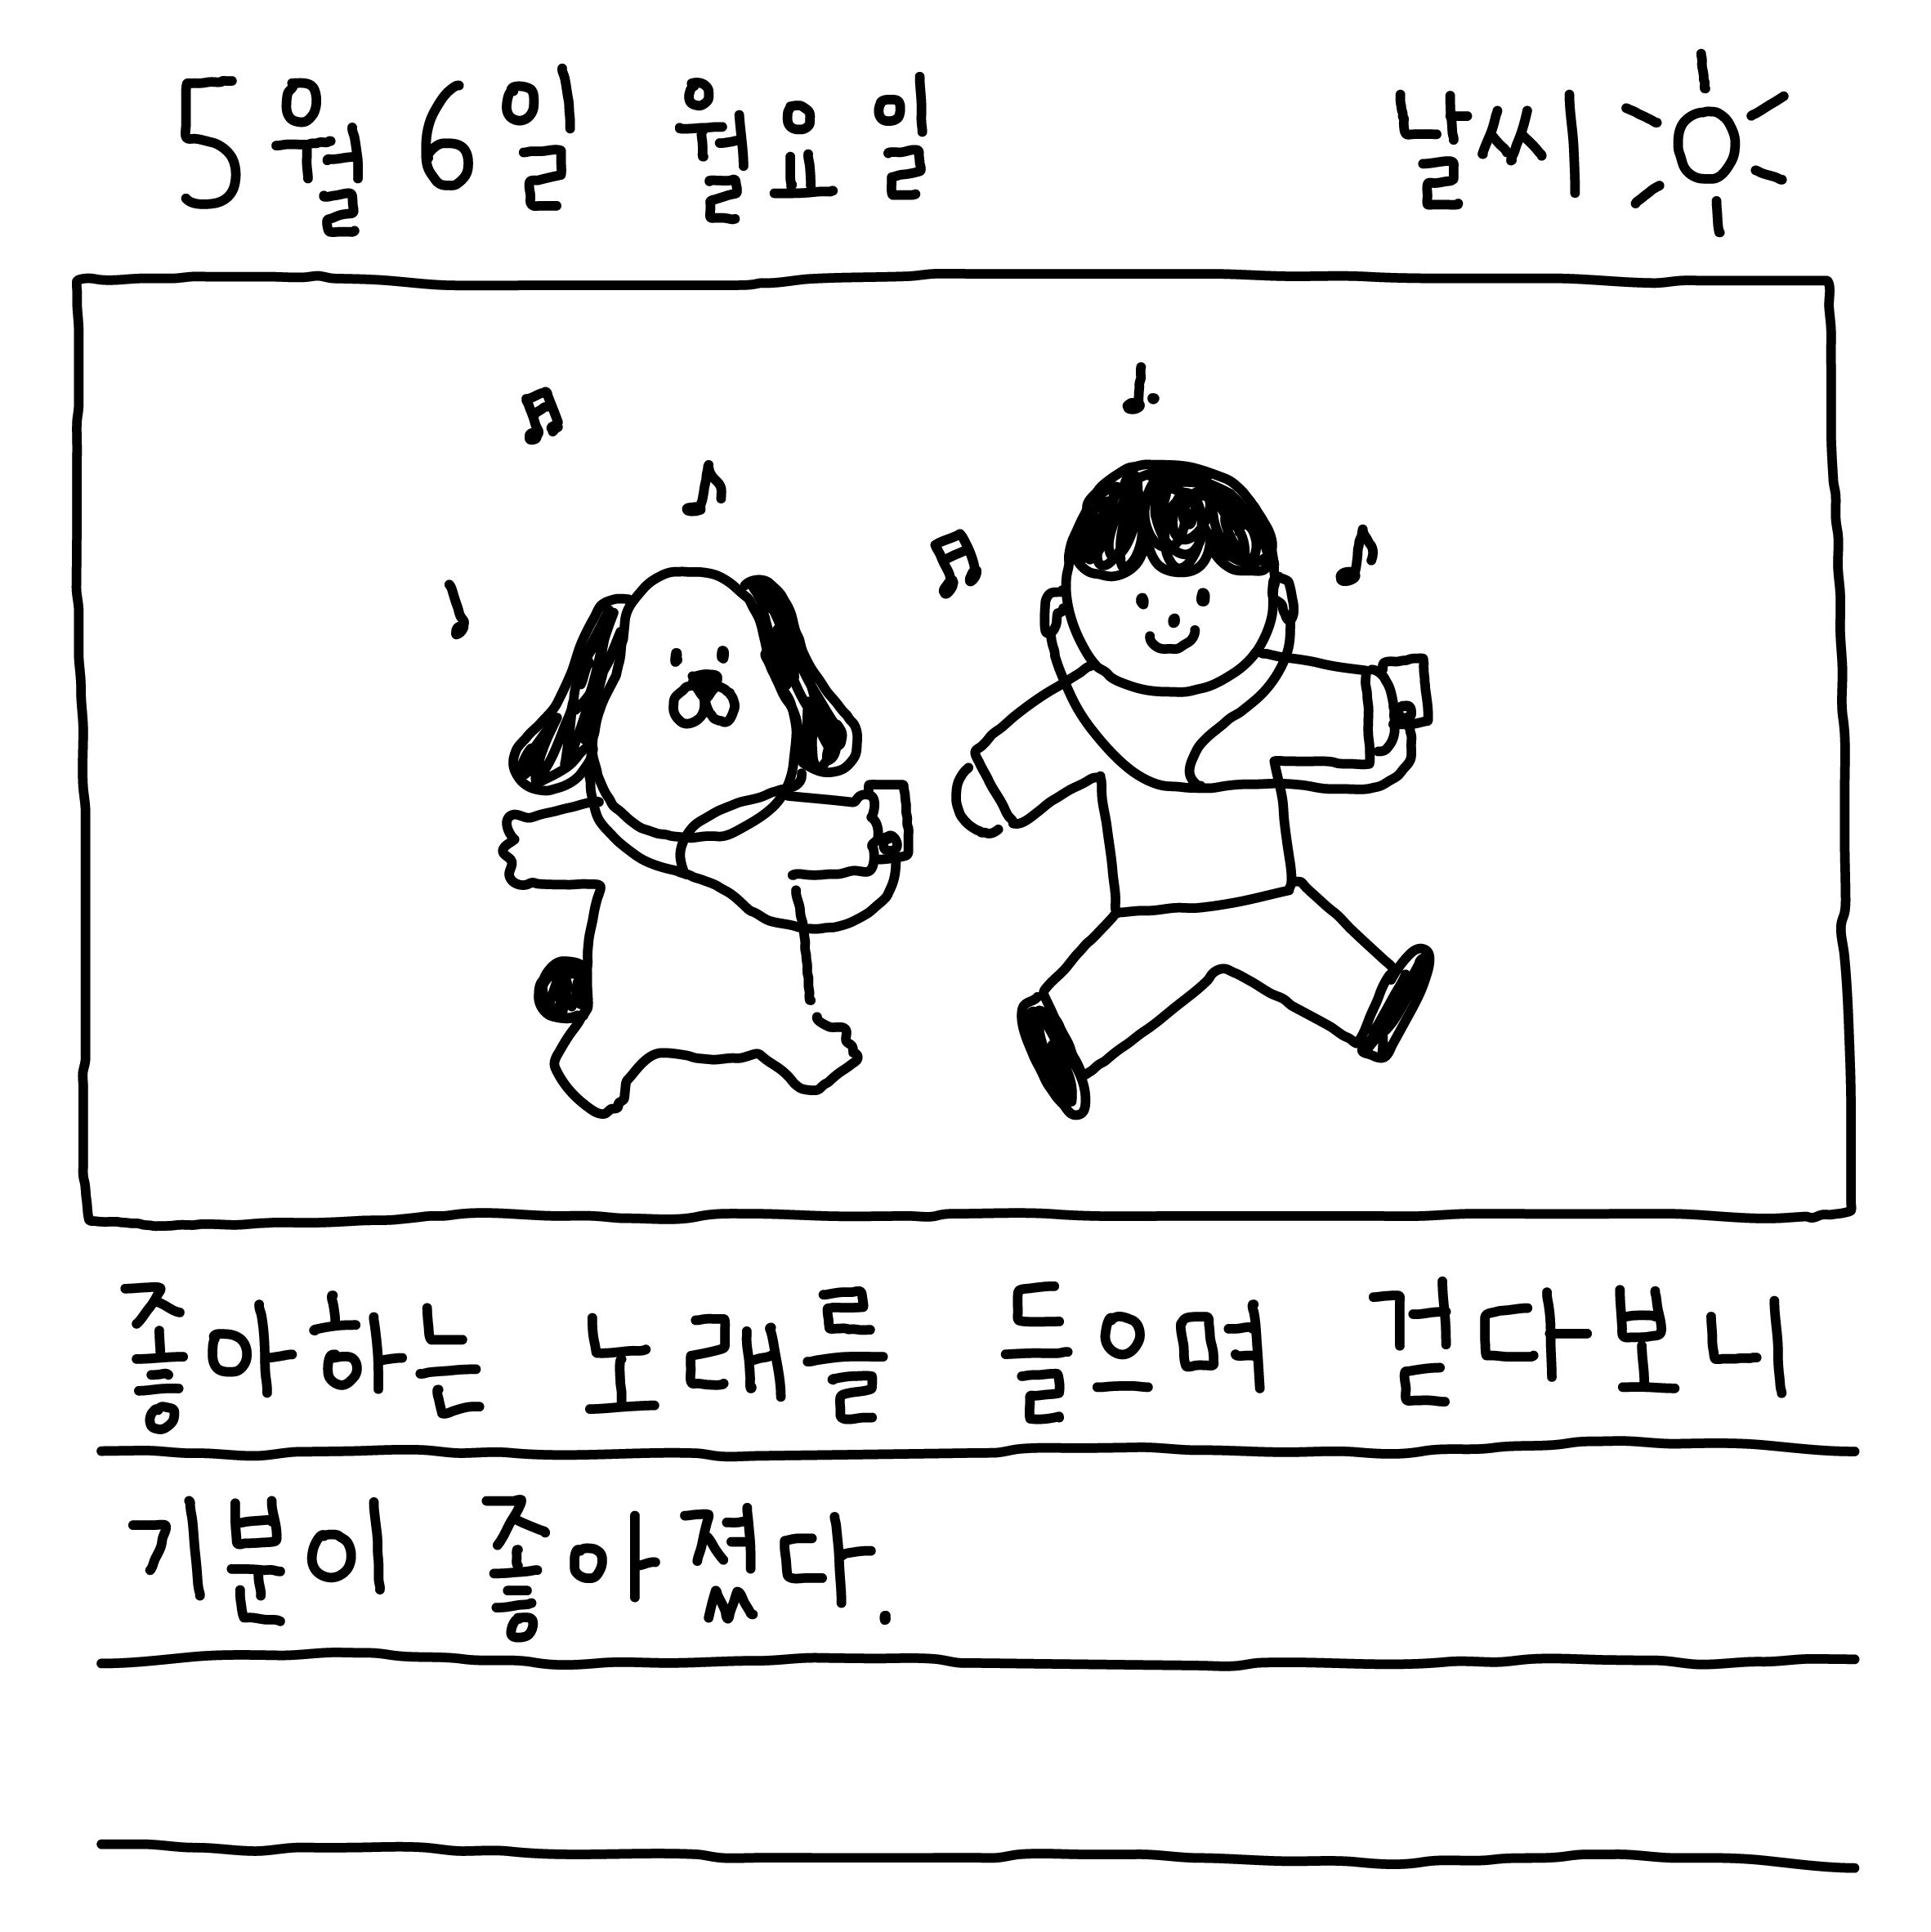 5월 6일 월요일 날씨
좋아하는 노래를 들으며 걷다보니
기분이 좋아졌다.